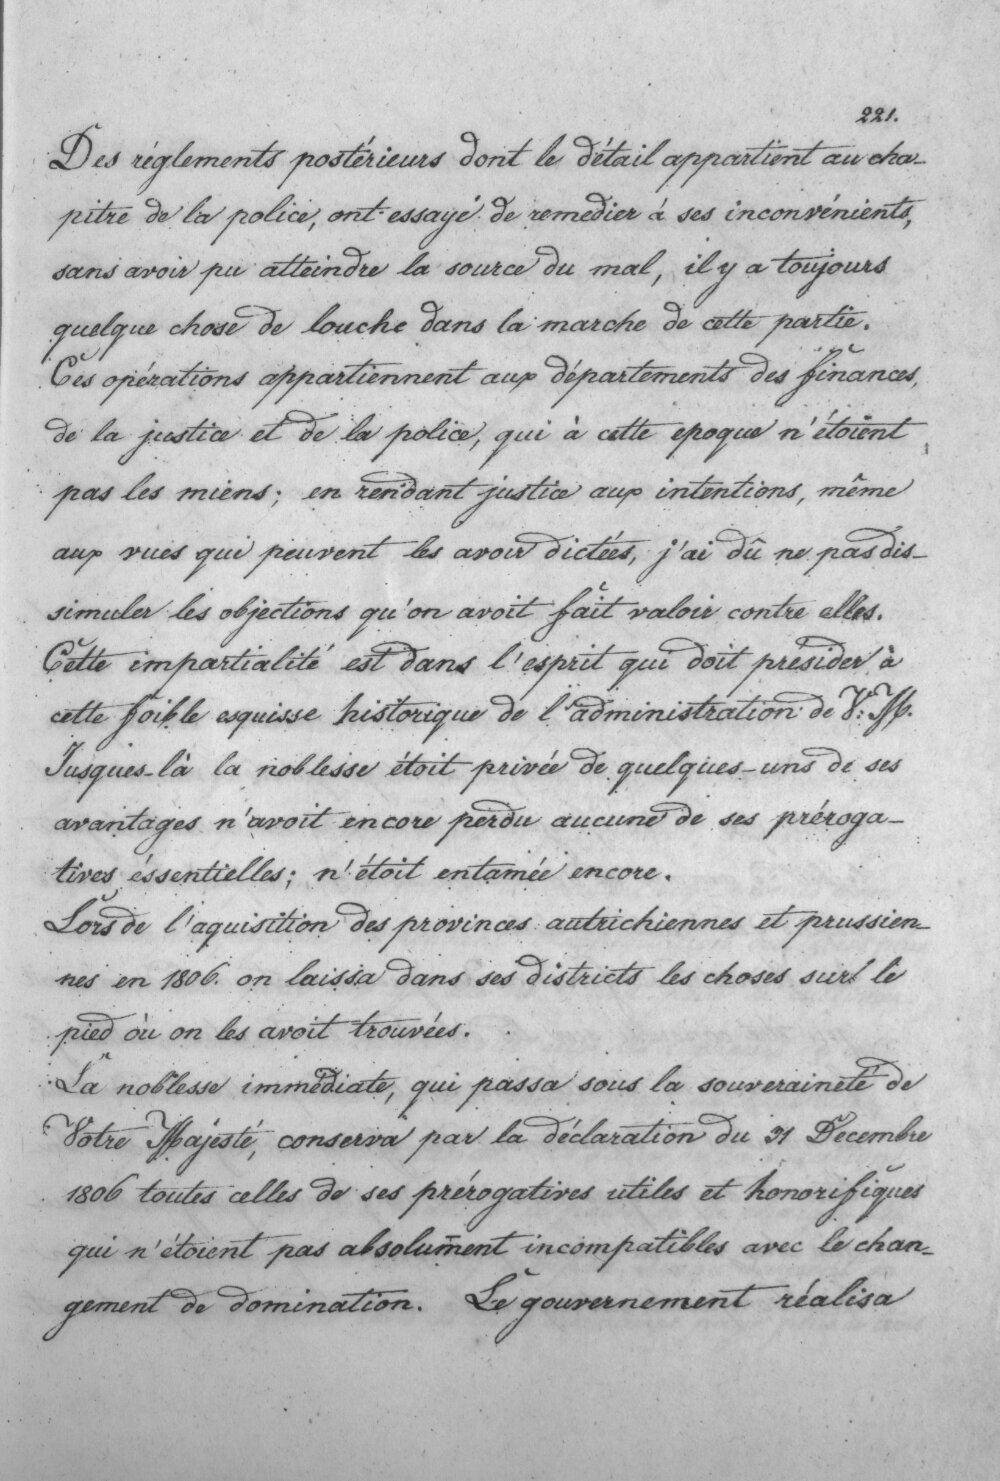 221.
Des réglements postérieurs dont le détail appartient au cha-
pitre de la police, ont essayé de remedier à ses inconvénients,
sans avoir pu atteindre la source du mal, il y a toujours
quelque chose de louche dans la marche de cette partie.
Ces opérations appartiennent aux départements des finances,
de la justice et de la police, qui à cette epoque n'étoient
pas les miens; en rendant justice aux intentions, même
aux vues qui peuvent les avoir dictées, j'ai dû ne pas dis-
simuler les objections qu'on avoit fait valoir contre elles.
Cette impartialité est dans l'esprit qui doit présider à
cette foible esquisse historique de l'administration de V: M.
Jusques-là la noblesse étoit privée de quelques-uns de ses
avantages n'avoit encore perdu aucune de ses préroga-
tives éssentielles; n'étoit entamée encore.
Lors de l'aquisition des provinces autrichiennes et prussien-
nes en 1806. on laissa dans ses districts les choses sur le
pied où on les avoit trouvées.
La noblesse immédiate, qui passa sous la souveraineté de
Votre Majesté, conserva par la déclaration du 31 Decembre
1806 toutes celles de ses prérogatives utiles et honorifiques
qui n'étoient pas absolument incompatibles avec le chan-
gement de domination. Le gouvernement réalisa